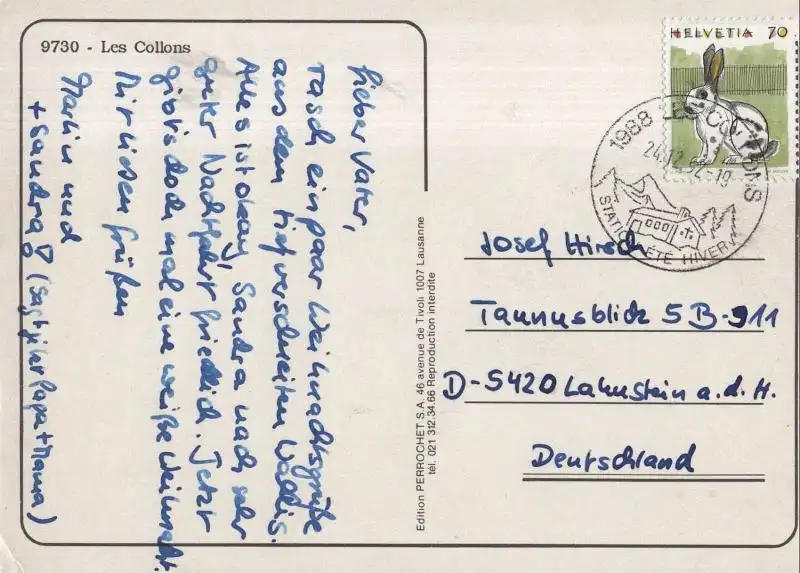 9730 - Les Collons
Lieber Vater,
rasch ein paar Weihnachtsgrüße
aus dem tiefverschneiten Wallis.
Alles ist okay, Sandra nach sehr
guter Nachtfahrt friedlich. Jetzt
gibt's doch mal eine weiße Weihnacht.
Mit lieben Grüßen
Martin und
+ Sandra (sagt jetzt Papa + Mama)
Edition PERROCHET S.A. 46 avenue de Tivoli 1007 Lausanne
tél. 021 312.34.66 Reproduction interdite
HELVETIA 70
1988 LES COLLONS
24.12.92-19
STATION ÉTÉ HIVER
Josef Hirsch
Taunusblick 5 B-911
D-5420 Lahnstein a.d.H.
Deutschland